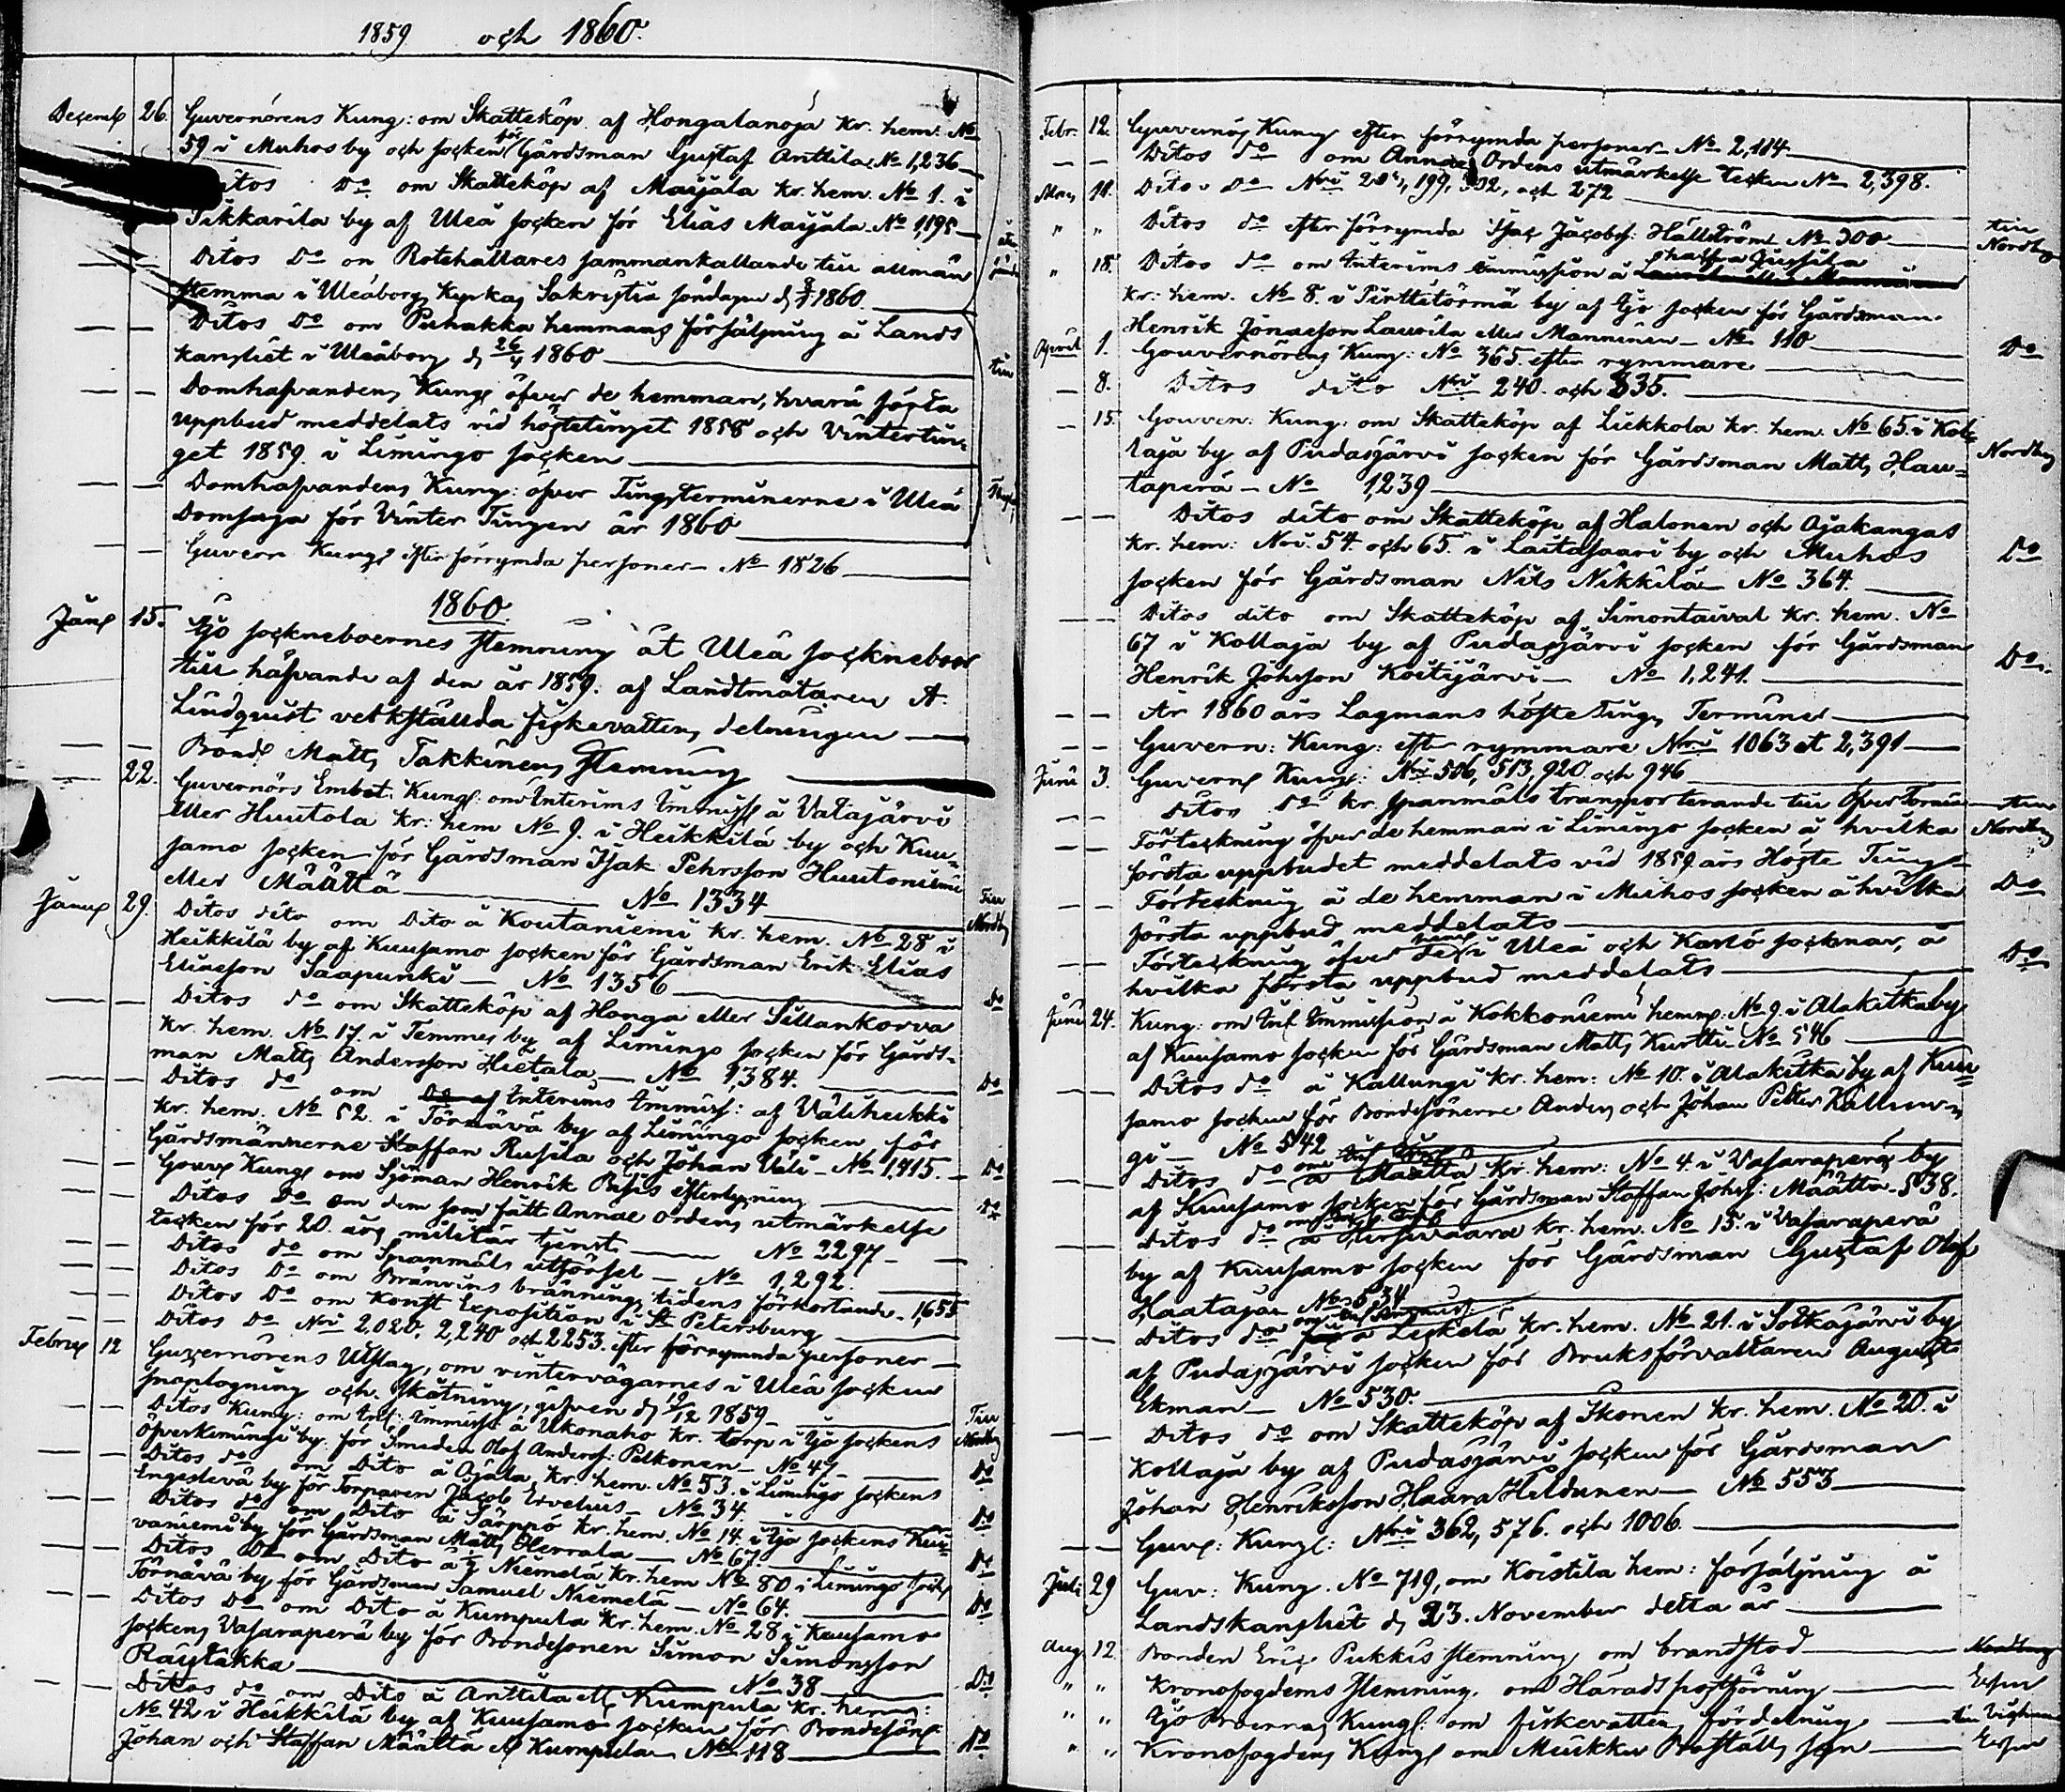 1859 och 1860.
Decemb 26. Guvernörens Kung: om Skatteköp af Hongalanoja kr. hem. No
59 i Muhos by och socken för Gårdsman Gustaf Anttila No 1,236
Ditos Do om Skatteköp af Marjala kr. hem. No 1. i
Tikkarila by af Uleå socken för Elias Marjala No 1,195
Ditos Do om Rotehållares sammankallande till allmän
stemma i Uleåborgs Kyrkas Sakristia söndagen d 8/1 1860.
Ditos Do om Puhakka hemmans försäljning å Lands
kansliet i Uleåborg d 26/4 1860
Domhafvandens Kung öfver de hemman, hvarå första
uppbud meddelats vid höstetinget 1858 och Vintertin=
get 1859. i Limingo socken
Domhafvandens Kung: öfver Tingsterminerne i Uleå
Domsaga för Vinter Tingen år 1860
Guvern Kung efter förrymda personer No 1826
1860.
Janu 15. Ijo socknеboernes stemning åt Uleå sockneboer
till håfvande af den år 1859. af Landtmätaren A.
Lindqvist verkställda fiskevattens delningen
Bond Matts Takkinens stemning
22. Guvernörs Embet. Kung: om Interims Immiss å Vatajärvi
eller Huutola kr: hem No 9. i Heikkilä by och Kuu=
samo socken för Gårdsman Isak Pehrsson Huutoniemi
eller Määttä No 1334
Janu 29. Ditos dito om Dito å Koutaniemi kr. hem. No 28 i Till Nordb
Heikkilä by af Kuusamo socken för Gårdsman Erik Elias
Eliasson Saapunki No 1356
Ditos do om Skatteköp af Honga eller Sillankorva Do
kr. hem. No 17. i Temmes by af Limingo socken för Gårds=
man Matts Andersson Hietala No 1,384.
Ditos do om Interims Immiss: af Väliheikki Do
kr. hem. No 52. i Törmävä by af Limingo socken för
Gårdsmännerne Staffan Rusila och Johan Väli No 1,415.
Gouv Kung om Sjöman Henrik efterlysning Do
Ditos Do om dem som fått Annae ordens utmärkelse Do
tecken för 20. års militär tjenst No 2297
Ditos do om Spanmåls utförsel No 1,292.
Ditos Do om Brännvins brännings tidens förkortande. 1,655
Ditos Do om Konst Exposition i St Petersburg
Ditos Do Nri 2,020. 2,240 och 2253. efter förrymda personer
Februa 12 Guvernörens Utslag, om vintervägarnes i Uleå socken
snöplogning och skötning, gifven d 12 1859
Ditos Kung: om Int: Immiss å Ukonaho kr. torp i Ijo sockens Till Nordb
Öfverkiminge by. för Smeden Olof Anderss: Pelkonen No 47
Ditos do om Dito å Ojala kr. hem. No 53. i Limingo sockens Do
Ängeslevä by för Torparen Jacob Ervelius No 34.
Ditos do om Dito å Särppö kr. hem. No 14. i Ijo sockens Kui= Do
vaniemi by för Gårdsman Matts Herrala No 67.
Ditos Do om Dito å 1/2 Niemelä kr. hem No 80 i Limingo sock Do
Törmävä by för Gårdsman Samuel Niemelä No 64.
Ditos Do om Dito å Kumpula kr. hem. No 28 i Kuusamo Do
sockens Vasaraperä by för Bondesonen Simon Simonsson
Räytäkkä No 38
Ditos do om Dito å Anttila ell Kumpula kr. hem: Do
No 42 i Heikkilä by af Kuusamo socken för Bondesön
Johan och Staffan Määttä ell Kumpula No 118 Do
Febr. 12. Guvernörs Kung efter förrymda personer No 2,184
Ditos do om Annae Ordens utmärkelse tecken No 2,398.
Mars 11. Ditos Do Nri 201, 199, 302, och 272
" " Ditos do efter förrymda Isac Jacobss: Hällström No 300 till Nordberg
" 18. Ditos do om Interims immission å halfva Jussila
kr: hem. No 8. i Pirttitörmä by af Ijo socken för Gårdsman
Henrik Jonasson Laurila eller Manninen No 110 Do
April 1. Gouvernörens Kung: No 365. efter rymmare
8. Ditos dito Nri 240. och 335.
15. Gouvern: Kung: om Skatteköp af Liekkola kr. hem. No 65. i Kol=
laja by af Pudasjärvi socken för Gårdsman Matts Hau= Nordberg
taperä No 1,239
Ditos dito om Skatteköp af Halonen och Ojakangas
kr. hem: Nri. 54. och 65. i Laitasaari by och Muhos Do
socken för Gårdsman Nils Nikkilä No 364.
Ditos dito om Skatteköp af Simontaival kr. hem. No
67 i Kollaja by af Pudasjärvi socken för Gårdsman
Henrik Johsson Koitijärvi No 1,241. Do.
År 1860 års Lagmans höste Tings Terminer
Guvern: Kung: efter rymmare Nri 1063 et 2,391
Juni 3. Guvern Kung: Nri 506, 513, 920. och 946
Ditos Do kr. spanmåls transporterande till Öfver Torneå
Förteckning öfver de hemman i Limingo socken å hvilka till Nordberg
första uppbudet meddelats vid 1859 års Höste Ting
Förteckning å de hemman i Muhos socken å hvilka Do
första uppbud meddelats
Förteckning öfver de hem i Uleå och Karlö socknar, å Do
hvilka första uppbud meddelats
Juni 24. Kung: om Int Immission å Kokkoniemi hemm: No 9. i Alakitka by
af Kuusamo socken för Gårdsman Matts Kurtti No 546
Ditos do å Kallungi kr. hem: No 10. i Alakitka by af Kuu=
samo socken för Bondesönerne Anders och Johan Petter Kallun=
gi No 542
Ditos do å Määttä kr. hem: No 4. i Vasaraperä by
af Kuusamo socken för Gårdsman Staffan Johss: Määttä 538.
Ditos do å Hirsivaara kr. hem. No 15. i Vasaraperä
by af Kuusamo socken för Gårdsman Gustaf Olof
Haatajan No 534
Ditos do om Int Immiss: å Leskelä kr. hem. No 21. i Sotkajärvi by
af Pudasjärvi socken för Bruksförvaltaren August
Ekman No 530.
Ditos do om Skatteköp af Ikonen kr. hem. No 20. i
Kollaja by af Pudasjärvi socken för Gårdsman
Johan Henriksson Haara Hildunen No 553
Guv: Kung: Nri 362, 576. och 1006.
Juli 29 Guv: Kung. No 719, om Koistila hem: försäljning å
Landskansliet d 23. November detta år
Aug 12. Bonden Eric Pukkis stemning om brandstod
" " Kronofogdens stemning. om Härads postförning
" " Ijo Boernas Kung: om fiskevattens fördelning
" " Kronofogdens Kung om Muikku Boställs syn